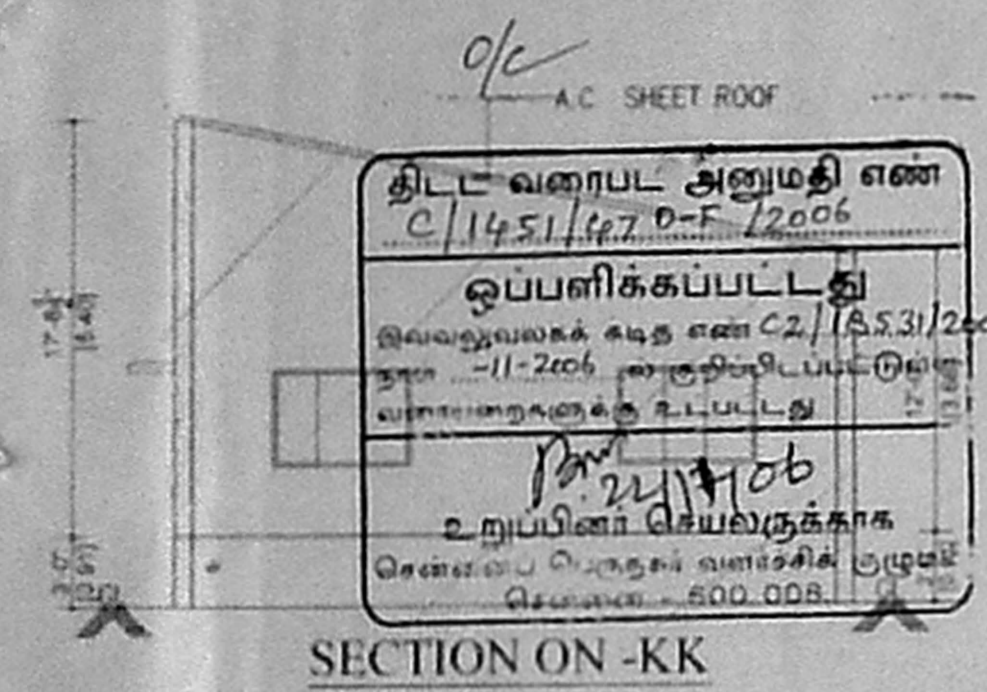 O/C
A.C SHEET ROOF
திட்ட வரைபட அனுமதி எண்
C/1451/47 D-F /2006
ஒப்பளிக்கப்பட்டது
இவ்வலுவலகக் கடித எண் C2/
நாள் -11-2006 ல் குறிப்பிடப்பட்டுள்ள
வரையறைகளுக்கு உட்பட்டது
உறுப்பினர் செயலருக்காக
சென்னைப் பெருநகர் வளர்ச்சிக் குழுமம்
சென்னை - 600 008.
SECTION ON -KK